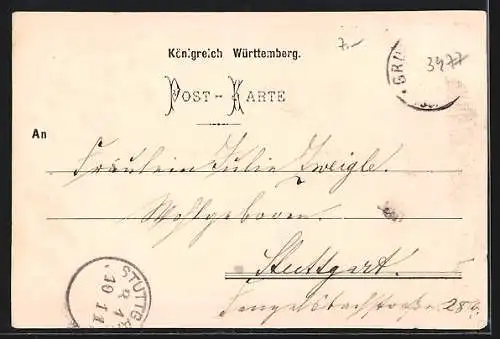 7.-
Königreich Württemberg.
GRU
3477
POST-KARTE
An
Fräulein Julie Zweigle.
Wohlgeboren.
Stuttgart.
28
STUTTG
10 11